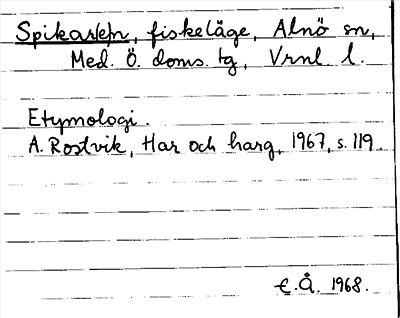 Spikarsjön, fiskeläge, Alnö sn,
Med. Ö. doms. tg, Vrnl l.
Etymologi.
A. Rostvik, Har och harg, 1967, s. 119.
E.Å. 1968.